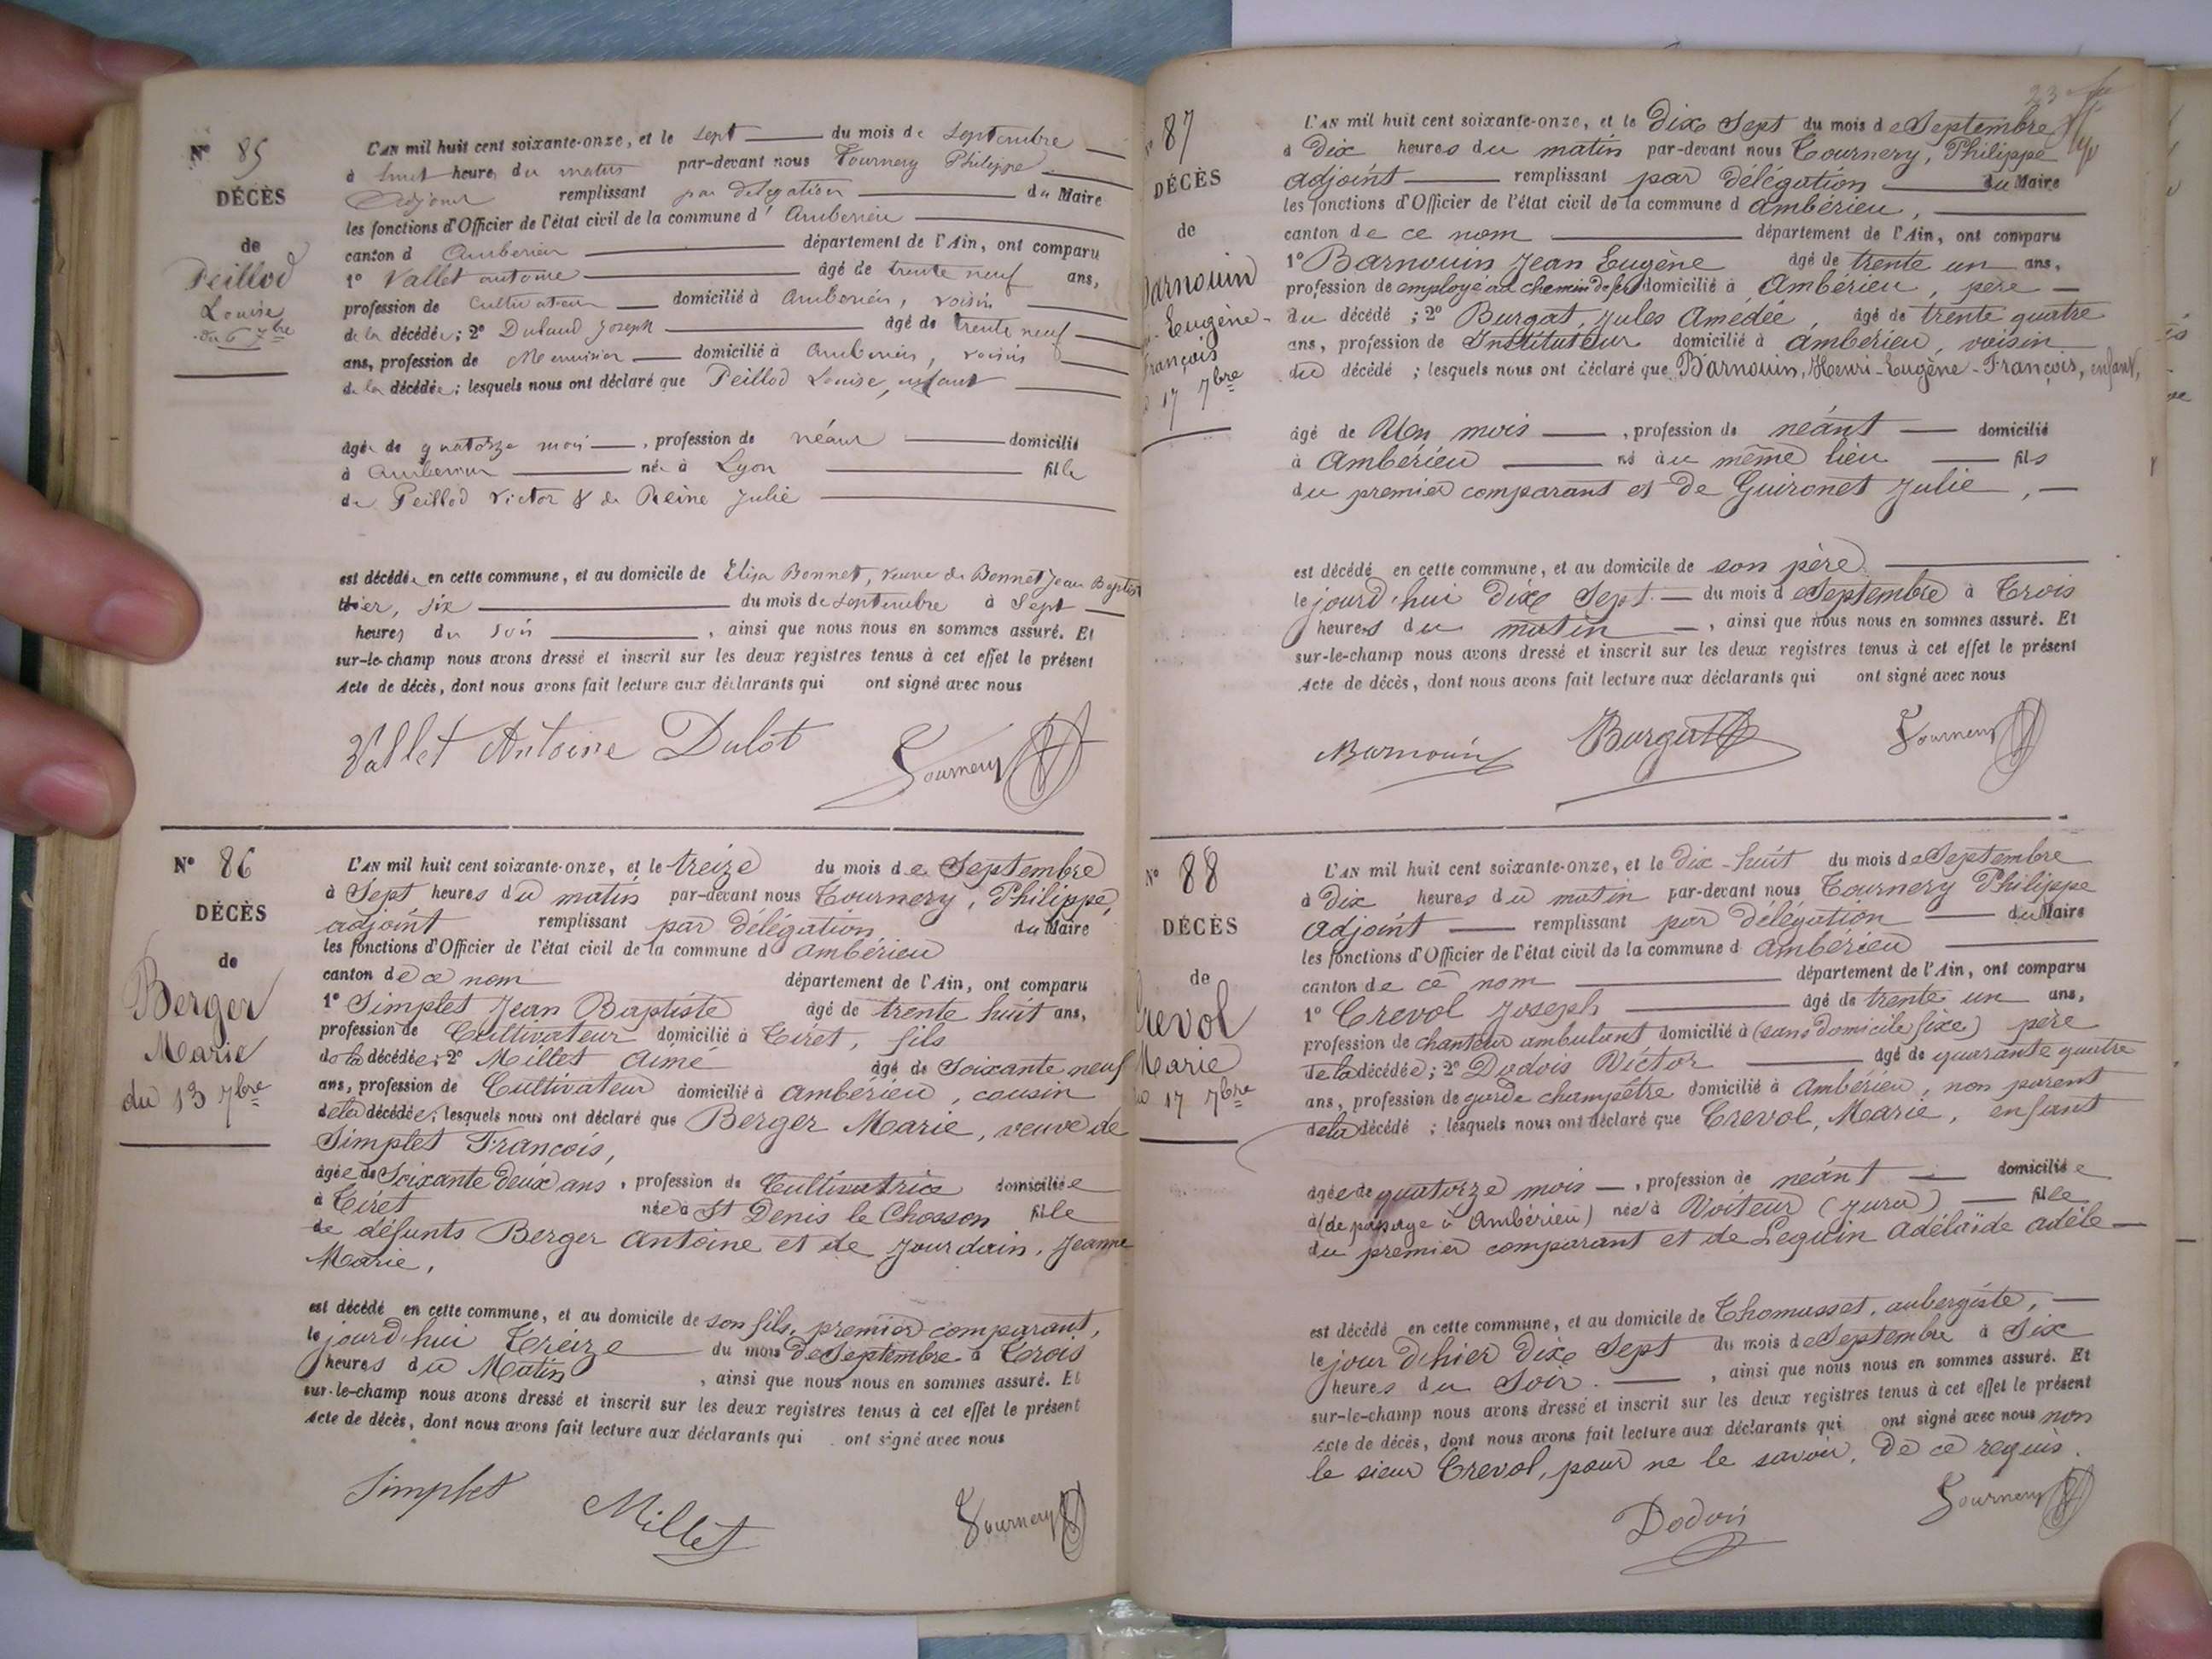 N° 85
DÉCÈS
de
Peillod
Louise
du 6 7bre
L'AN mil huit cent soixante-onze, et le sept du mois de Septembre
à huit heures du matin par-devant nous Tournery Philippe
Adjoint remplissant par délégation du Maire
les fonctions d'Officier de l'état civil de la commune d' Ambérieu
canton d Ambérieu département de l'Ain, ont comparu
1° Vallet antoine âgé de trente neuf ans,
profession de Cultivateur domicilié à Ambérieu, voisin
de la décédée; 2° Joseph âgé de trente neuf
ans, profession de Menuisier domicilié à Ambérieu, voisin
de la décédée; lesquels nous ont déclaré que Peillod Louise, enfant
âgée de quatorze mois, profession de néant domicilié
à Ambérieu née à Lyon fille
de Peillod Victor & de Reine Julie
est décédée en cette commune, et au domicile de Elisa Bonnet, veuve de Bonnet Jean Baptiste
hier, six du mois de Septembre à Sept
heures du soir, ainsi que nous nous en sommes assuré. Et
sur-le-champ nous avons dressé et inscrit sur les deux registres tenus à cet effet le présent
Acte de décès, dont nous avons fait lecture aux déclarants qui ont signé avec nous
Vallet Antoine Dulot Tournery
N° 86
DÉCÈS
de
Berger
Marie
du 13 7bre
L'AN mil huit cent soixante-onze, et le treize du mois de Septembre
à Sept heures du matin par-devant nous Tournery, Philippe,
adjoint remplissant par délégation du Maire
les fonctions d'Officier de l'état civil de la commune d Ambérieu
canton de ce nom département de l'Ain, ont comparu
1° Simplet Jean Baptiste âgé de trente huit ans,
profession de Cultivateur domicilié à Tiret, fils
de la décédée; 2° Millet Aimé âgé de Soixante neuf
ans, profession de Cultivateur domicilié à Ambérieu, cousin
de la décédée; lesquels nous ont déclaré que Berger Marie, veuve de
Simplet François,
âgée de Soixante deux ans, profession de Cultivatrice domiciliée
à Tiret née à St Denis le Chosson fille
de défunts Berger Antoine et de Jourdain, Jeanne
Marie,
est décédé en cette commune, et au domicile de son fils, premier comparant,
le jourd'hui Treize du mois de Septembre à Trois
heures du Matin, ainsi que nous nous en sommes assuré. Et
sur-le-champ nous avons dressé et inscrit sur les deux registres tenus à cet effet le présent
Acte de décès, dont nous avons fait lecture aux déclarants qui ont signé avec nous
Simplet Millet Tournery
23
87
DÉCÈS
de
Barnouin
Eugène-
François
17 7bre
L'AN mil huit cent soixante-onze, et le Dix Sept du mois de Septembre
à Dix heures du matin par-devant nous Tournery, Philippe
adjoint remplissant par délégation du Maire
les fonctions d'Officier de l'état civil de la commune d Ambérieu,
canton de ce nom département de l'Ain, ont comparu
1° Barnouin Jean Eugène âgé de trente un ans,
profession de employé au chemin de fer domicilié à Ambérieu, père
du décédé; 2° Burgat, Jules Amédée, âgé de trente quatre
ans, profession de Instituteur domicilié à Ambérieu, voisin
du décédé; lesquels nous ont déclaré que Barnouin, Henri-Eugène-François, enfant,
âgé de Un mois, profession de néant domicilié
à Ambérieu né au même lieu fils
du premier comparant et de Guironet Julie,
est décédé en cette commune, et au domicile de son père
le jourd'hui dix Sept du mois de Septembre à Trois
heures du matin, ainsi que nous nous en sommes assuré. Et
sur-le-champ nous avons dressé et inscrit sur les deux registres tenus à cet effet le présent
Acte de décès, dont nous avons fait lecture aux déclarants qui ont signé avec nous
Barnouin Burgat Tournery
N° 88
DÉCÈS
de
Crevol
Marie
17 7bre
L'AN mil huit cent soixante-onze, et le Dix-huit du mois de Septembre
à Dix heures du matin par-devant nous Tournery Philippe
adjoint remplissant par délégation du Maire
les fonctions d'Officier de l'état civil de la commune d Ambérieu
canton de ce nom département de l'Ain, ont comparu
1° Crevol Joseph âgé de trente un ans,
profession de chanteur ambulant domicilié à (sans domicile fixe) père
de la décédée; 2° Dodois Victor âgé de quarante quatre
ans, profession de garde champêtre domicilié à Ambérieu, non parent
de la décédé; lesquels nous ont déclaré que Crevol, Marie, enfant
âgée de quatorze mois, profession de néant domiciliée
à (de passage à Ambérieu) née à Voiteur (Jura) fille
du premier comparant et de Leguin Adélaïde Adèle
est décédé en cette commune, et au domicile de Thomasset, aubergiste,
le jour d'hier dix Sept du mois de Septembre à Six
heures du Soir, ainsi que nous nous en sommes assuré. Et
sur-le-champ nous avons dressé et inscrit sur les deux registres tenus à cet effet le présent
Acte de décès, dont nous avons fait lecture aux déclarants qui ont signé avec nous non
le sieur Crevol, pour ne le savoir, de ce requis.
Dodois Tournery